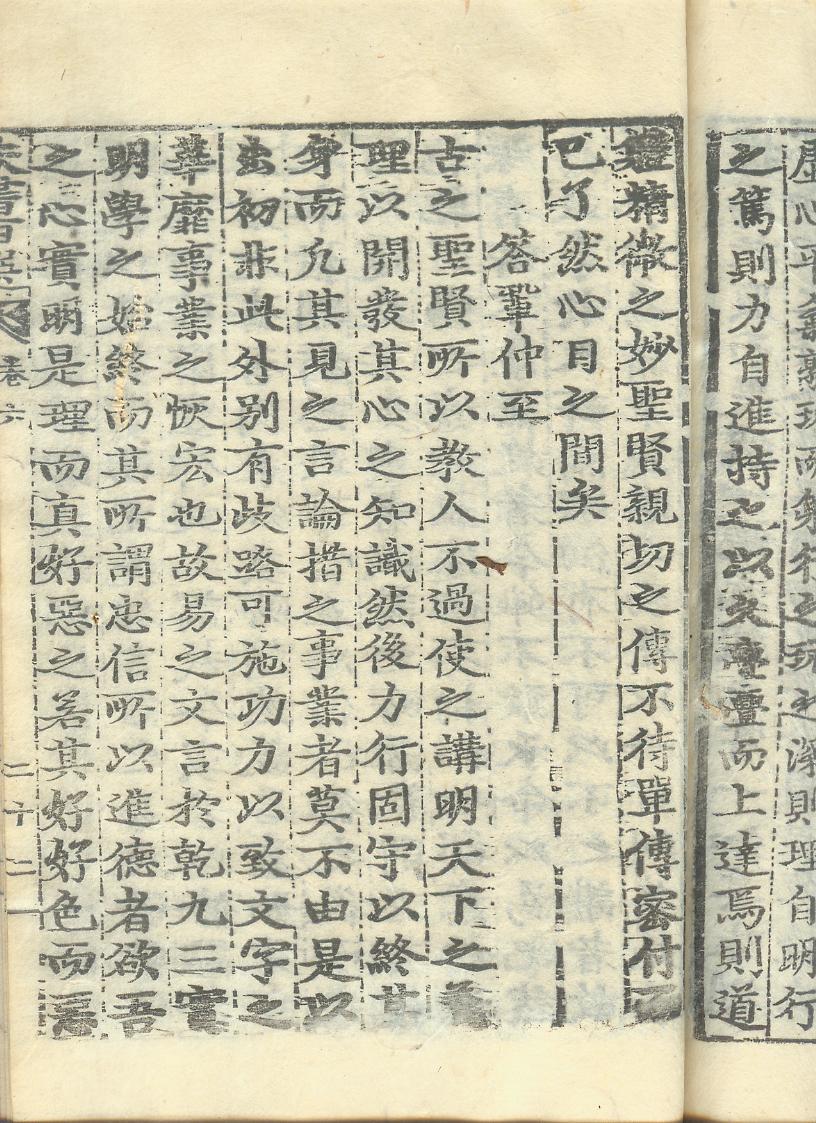 虛心平氣熟玩而躬行之玩之深則理自明行
之篤則力自進持之以久亹亹而上達焉則道
體精微之妙聖賢親切之傳不待單傳密付而
已了然心目之間矣
答鞏仲至
古之聖賢所以教人不過使之講明天下之義
理以開發其心之知識然後力行固守以終其
身而凡其見之言論措之事業者莫不由是以
出初非此外别有歧路可施功力以致文字之
華靡事業之恢宏也故易之文言於乾九三實
明學之始終而其所謂忠信所以進德者欲吾
之心實明是理而真好惡之若其好好色而惡
朱書百選 卷六 二十二